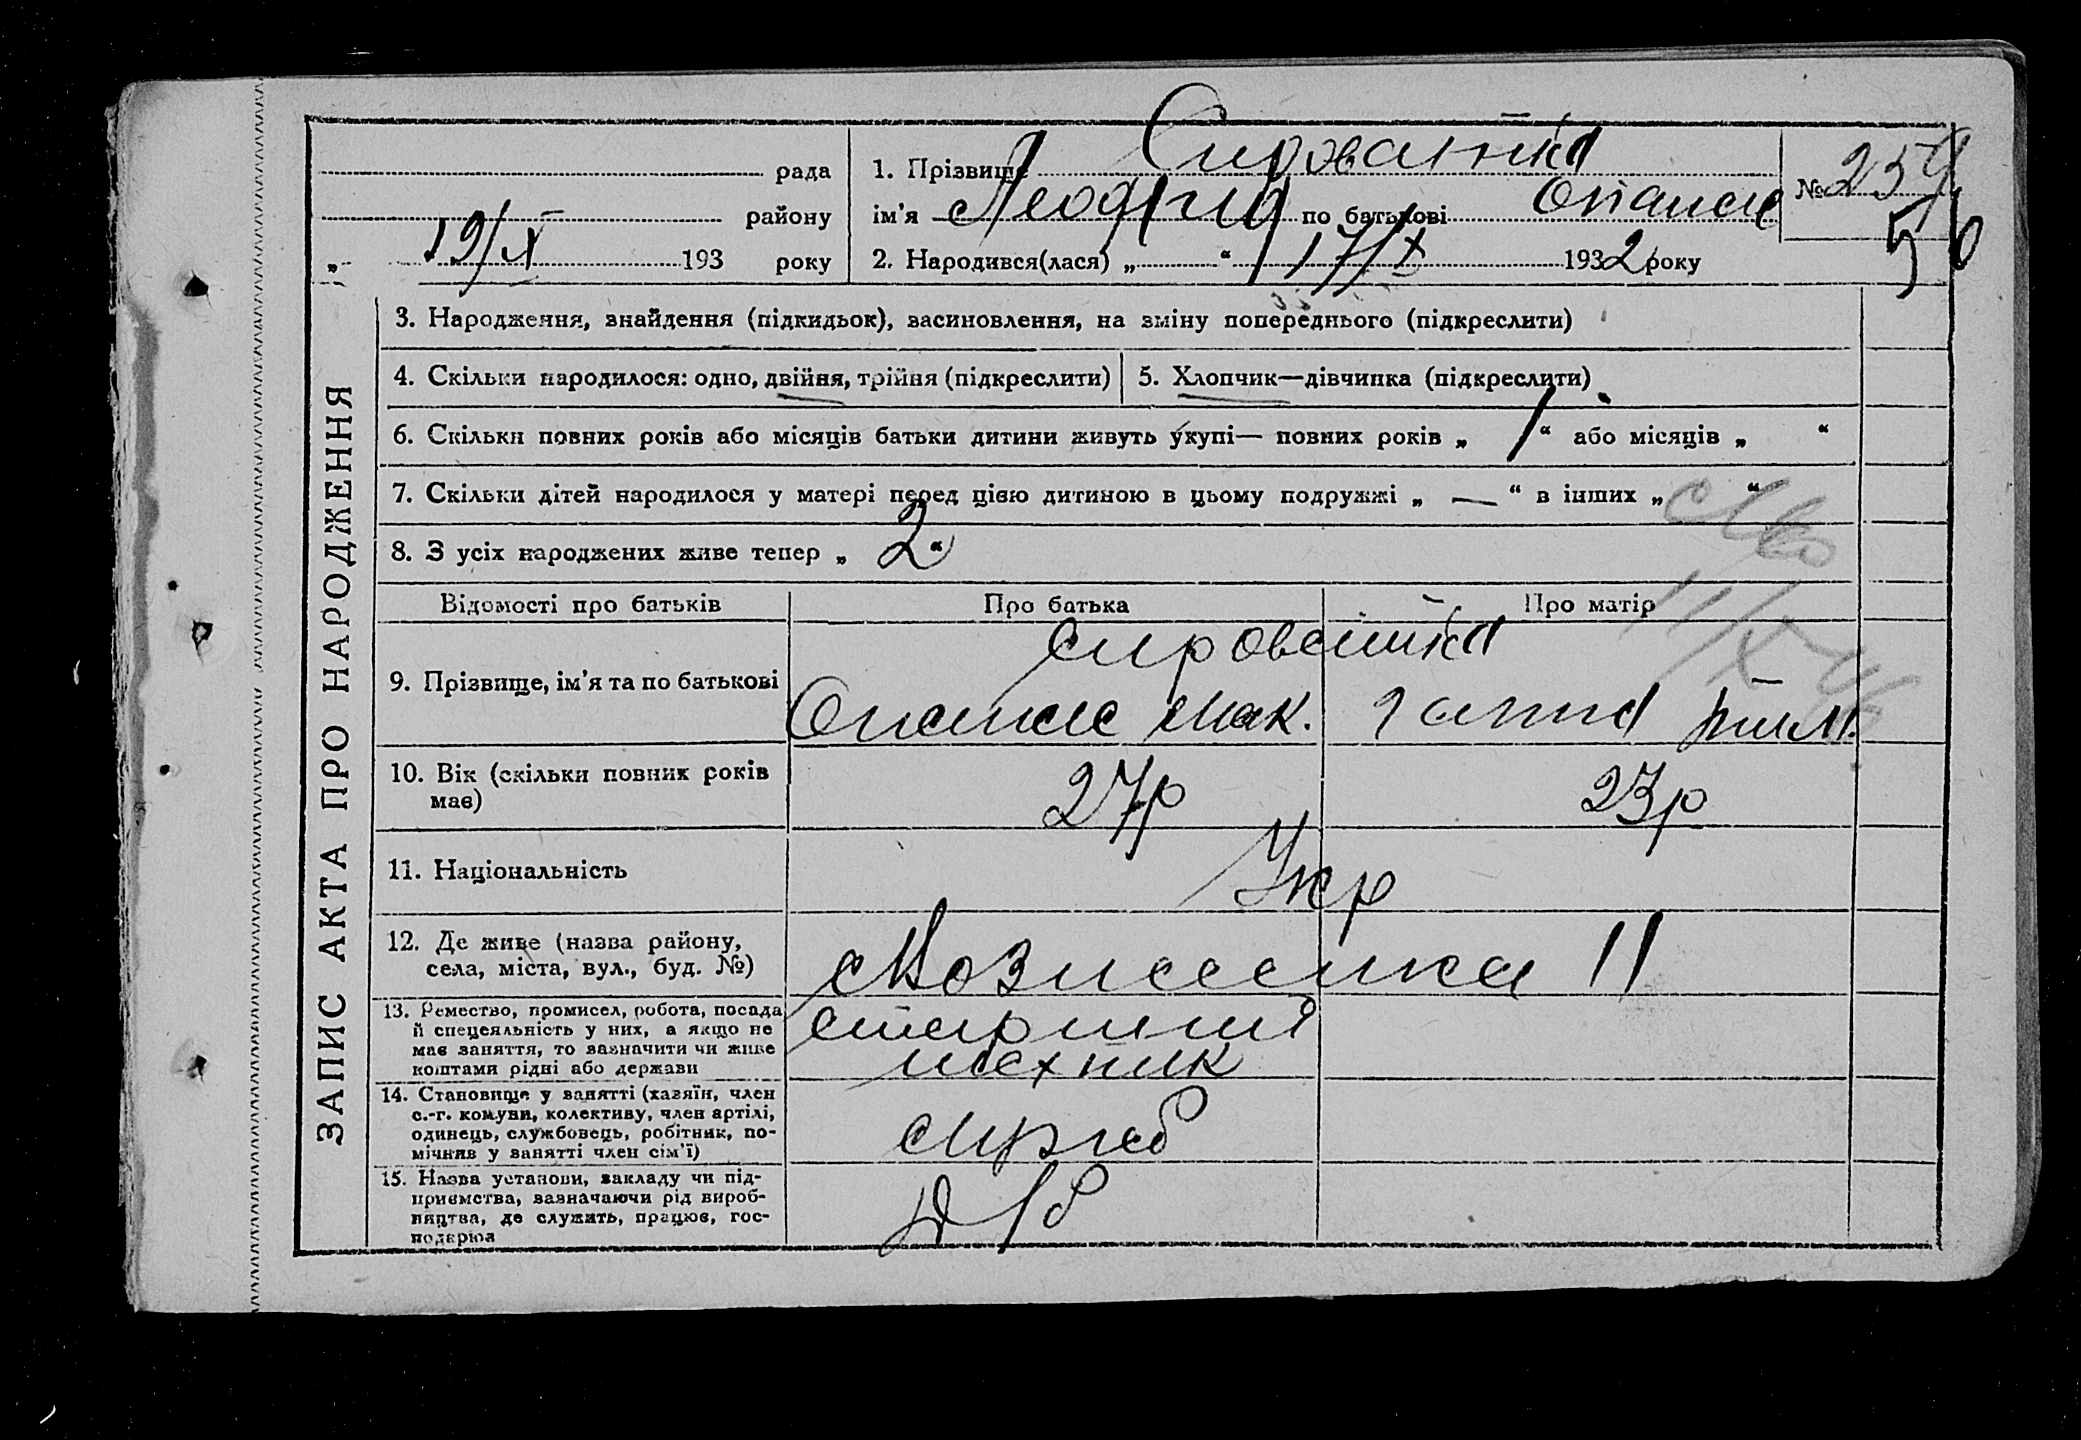 рада
району
„ 19/X 193 року
1. Прізвище Сироватка
ім'я Леофгид по батькові Опанас
2. Народився(лася) „ “ 17/X 1932 року
№ 259
56
ЗАПИС АКТА ПРО НАРОДЖЕННЯ
3. Народження, знайдення (підкидьок), засиновлення, на зміну попереднього (підкреслити)
4. Скільки народилося: одно, двійня, трійня (підкреслити)
5. Хлопчик—дівчинка (підкреслити)
6. Скільки повних років або місяців батьки дитини живуть укупі— повних років „ 1 “ або місяців „ “
7. Скільки дітей народилося у матері перед цією дитиною в цьому подружжі „ — “ в інших „ “
8. З усіх народжених живе тепер „ 2 “
Відомості про батьків Про батька Про матір
9. Прізвище, ім'я та по батькові
Сироватка
Опанас Мак. Ганна Тим.
10. Вік (скільки повних років має) 27р 23р
11. Національність Укр
12. Де живе (назва району, села, міста, вул., буд. №)
Вознесенка 11
13. Ремество, промисел, робота, посада
й спецеяльність у них, а якщо не
має заняття, то зазначити чи живе
коштами рідні або держави
старший
технік
14. Становище у занятті (хазяїн, член
с.-г. комуни, колективу, член артілі,
одинець, службовець, робітник, по-
мічняв у занятті член сім'ї)
15. Назва установи, закладу чи під-
приємства, зазначаючи рід вироб-
ництва, де служить, працює, гос-
подарює